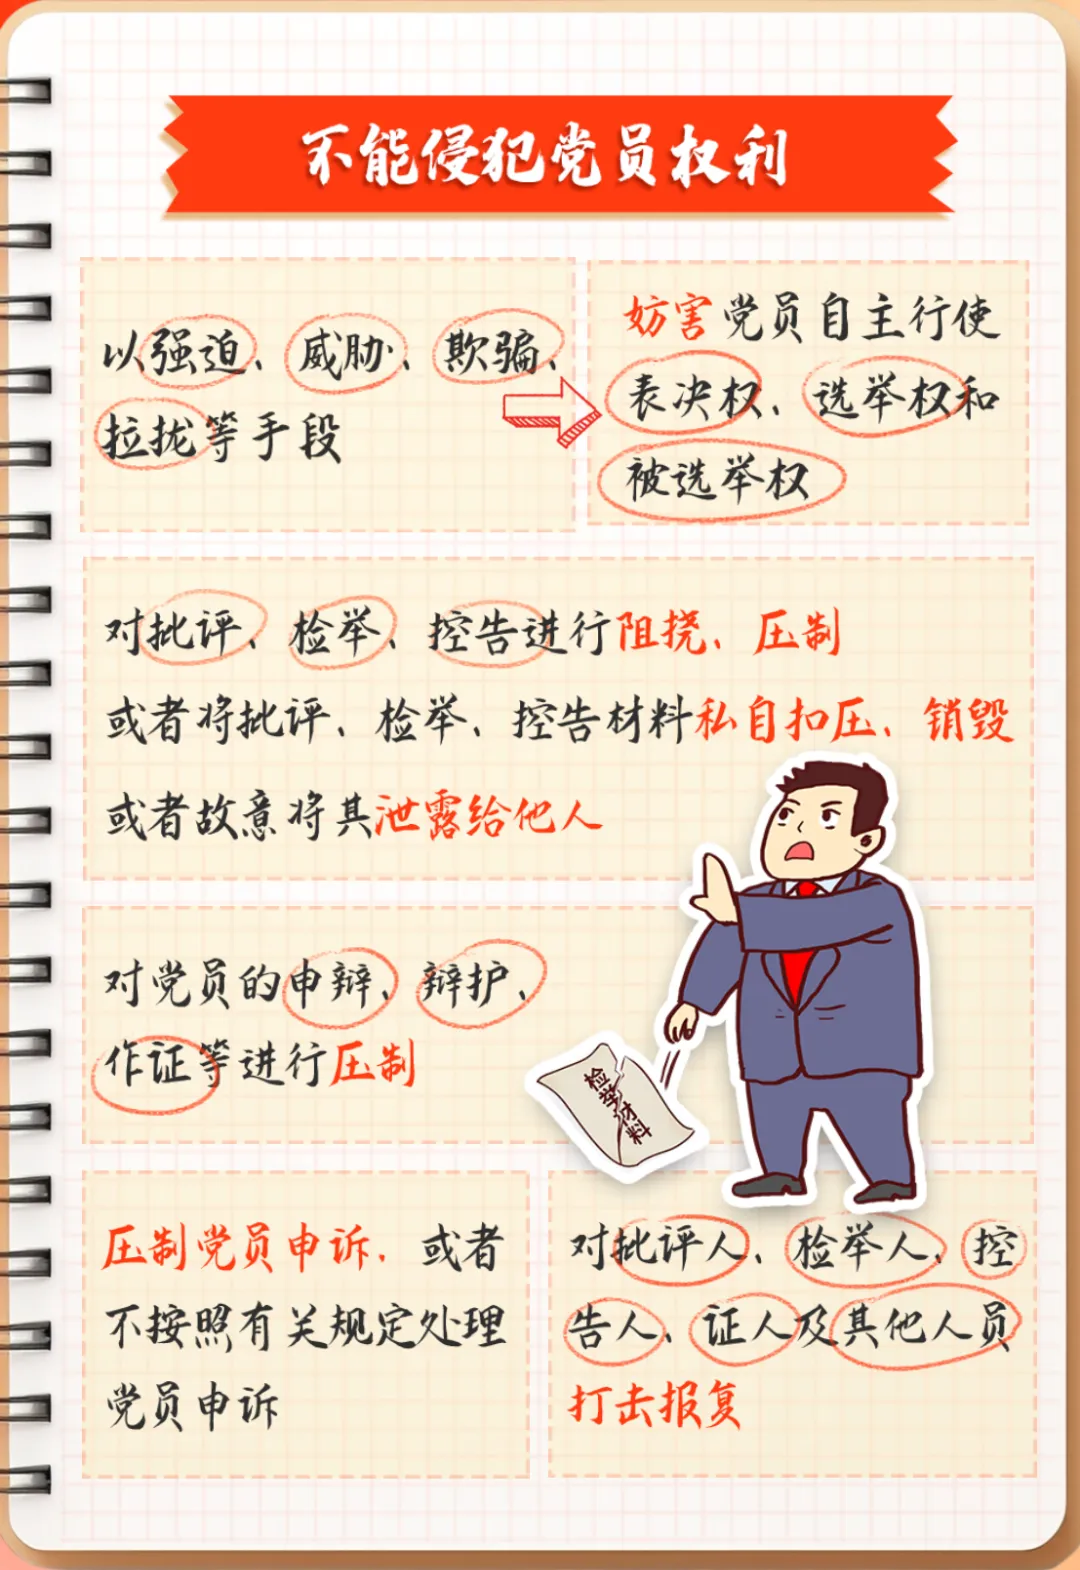 不能侵犯党员权利
以强迫、威胁、欺骗、
拉拢等手段
妨害党员自主行使
表决权、选举权和
被选举权
对批评、检举、控告进行阻挠、压制
或者将批评、检举、控告材料私自扣压、销毁
或者故意将其泄露给他人
对党员的申辩、辩护、
作证等进行压制
检举材料
压制党员申诉，或者
不按照有关规定处理
党员申诉
对批评人、检举人、控
告人、证人及其他人员
打击报复